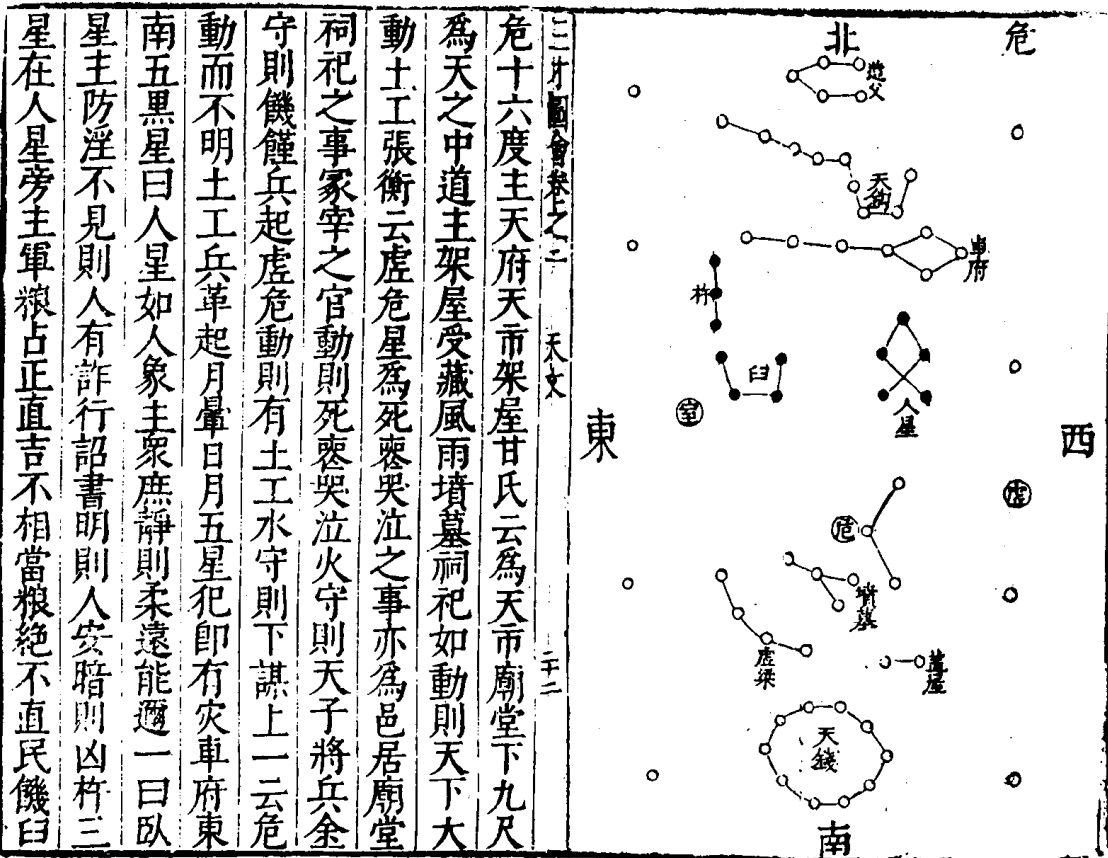 危
北
造父
天鈎
車府
杵
臼
人星
室
東
西
虛
危
墳墓
虛梁
蓋屋
天錢
南
三才圖會卷之二 天文 二十二
危十六度主天府天市架屋甘氏云為天市廟堂下九尺
為天之中道主架屋受藏風雨墳墓祠祀如動則天下大
動土工張衡云虛危星為死喪哭泣之事亦為邑居廟堂
祠祀之事冢宰之官動則死喪哭泣火守則天子將兵金
守則饑饉兵起虛危動則有土工水守則下謀上一云危
動而不明土工兵革起月暈日月五星犯即有灾車府東
南五黑星曰人星如人象主衆庶靜則柔遠能邇一曰臥
星主防淫不見則人有詐行詔書明則人安暗則凶杵三
星在人星旁主軍粮占正直吉不相當粮絶不直民饑臼